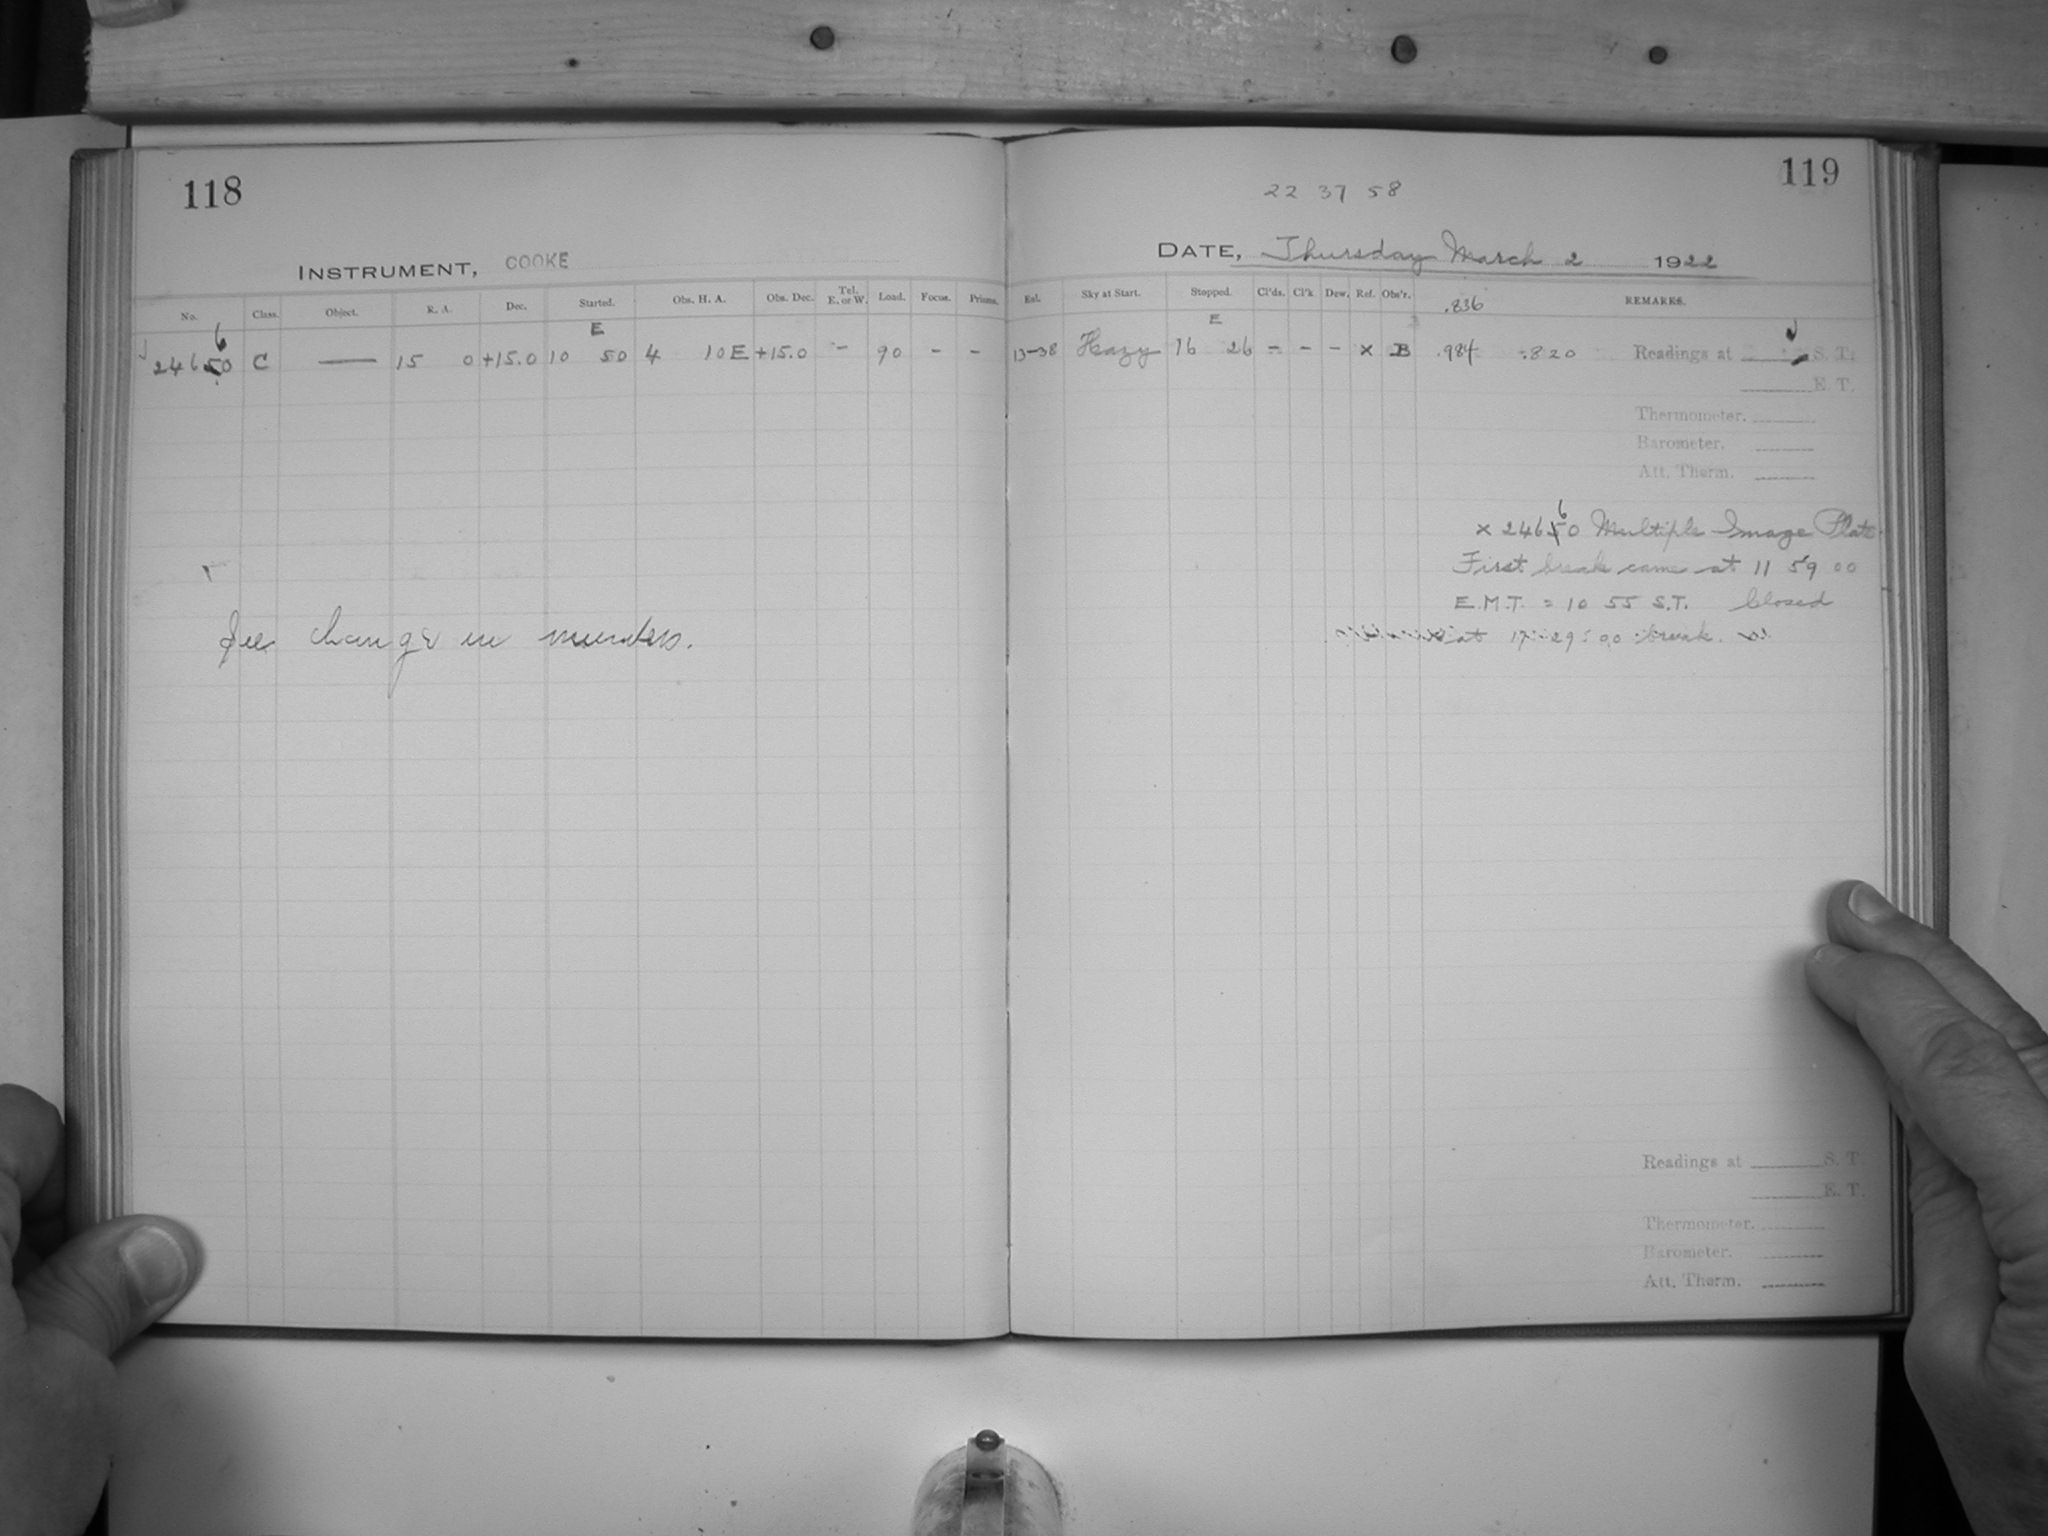 118
INSTRUMENT, COOKE
No. Class. Object. R. A. Dec. Started. Obs. H. A. Obs. Dec. Tel. E. or W. Load. Focus. Prisms.
6 E
24650 C — 15 0 +15.0 10 50 4 10 E +15.0 - 90 - -
See change in numbers.
119
22 37 58
DATE, Thursday March 2 1922
Sky at Start. Stopped. Cl'ds. Cl'k Dew. Ref. Obs'r. .836 REMARKS.
E
13-38 Hazy 16 26 - - - x B .984 .820 Readings at S. T.
E. T.
Thermometer.
Barometer.
Att. Therm.
6
x 24650 Multiple Image Plate
First break came at 11 59 00
E.M.T. = 10 55 S.T. Closed
at 17-29-00 break.
Readings at S. T.
E. T.
Thermometer.
Barometer.
Att. Therm.